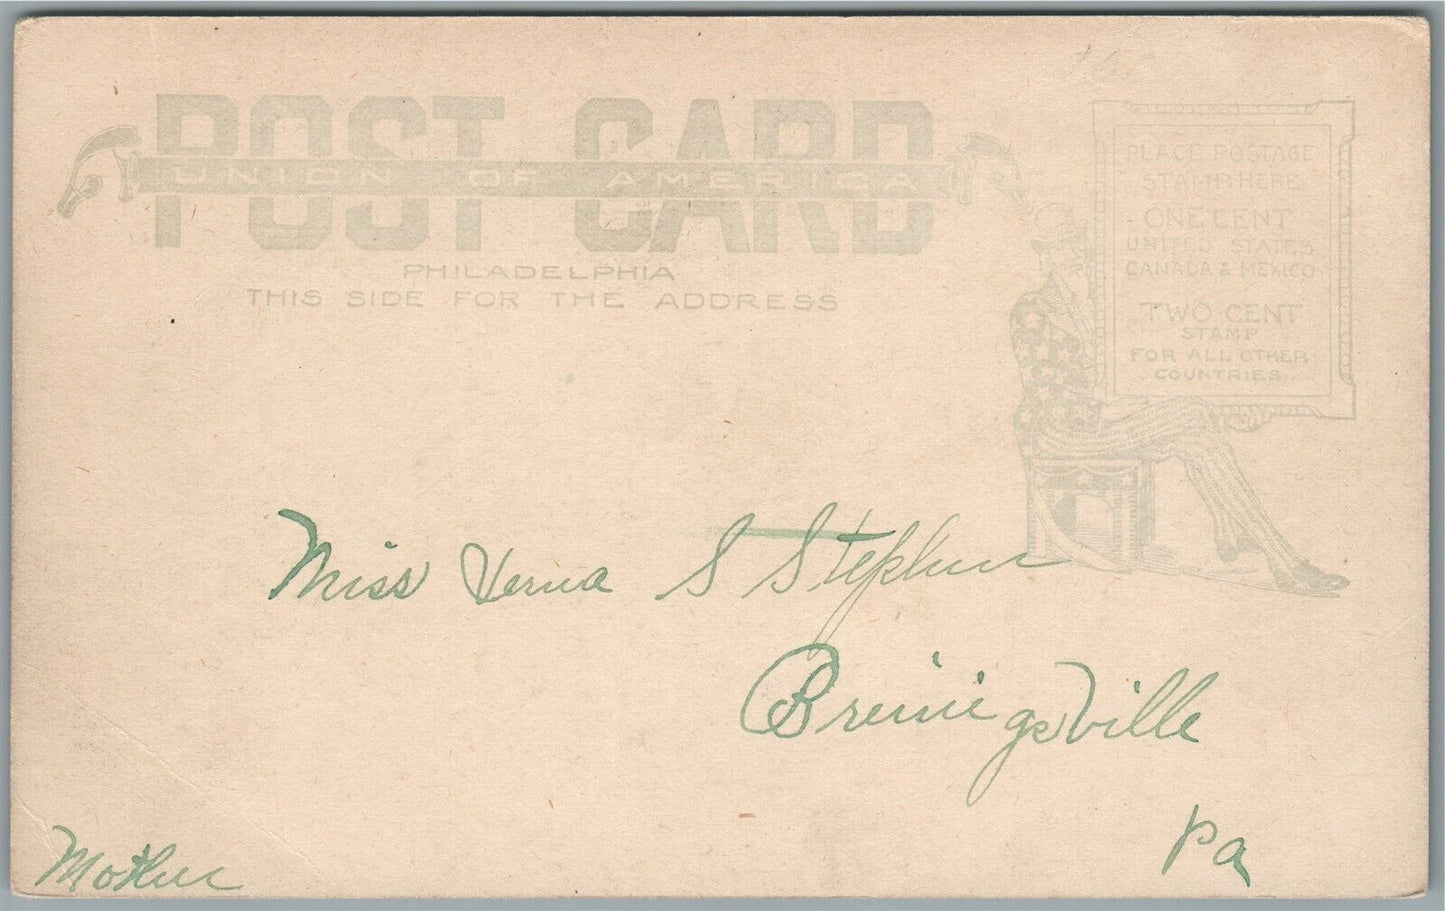 POST CARD
UNION OF AMERICA
PHILADELPHIA
THIS SIDE FOR THE ADDRESS
PLACE POSTAGE
STAMP HERE
ONE CENT
UNITED STATES
CANADA & MEXICO
TWO CENT
STAMP
FOR ALL OTHER
COUNTRIES
Miss Verna S Stephen
Breinigsville
Pa
Mother